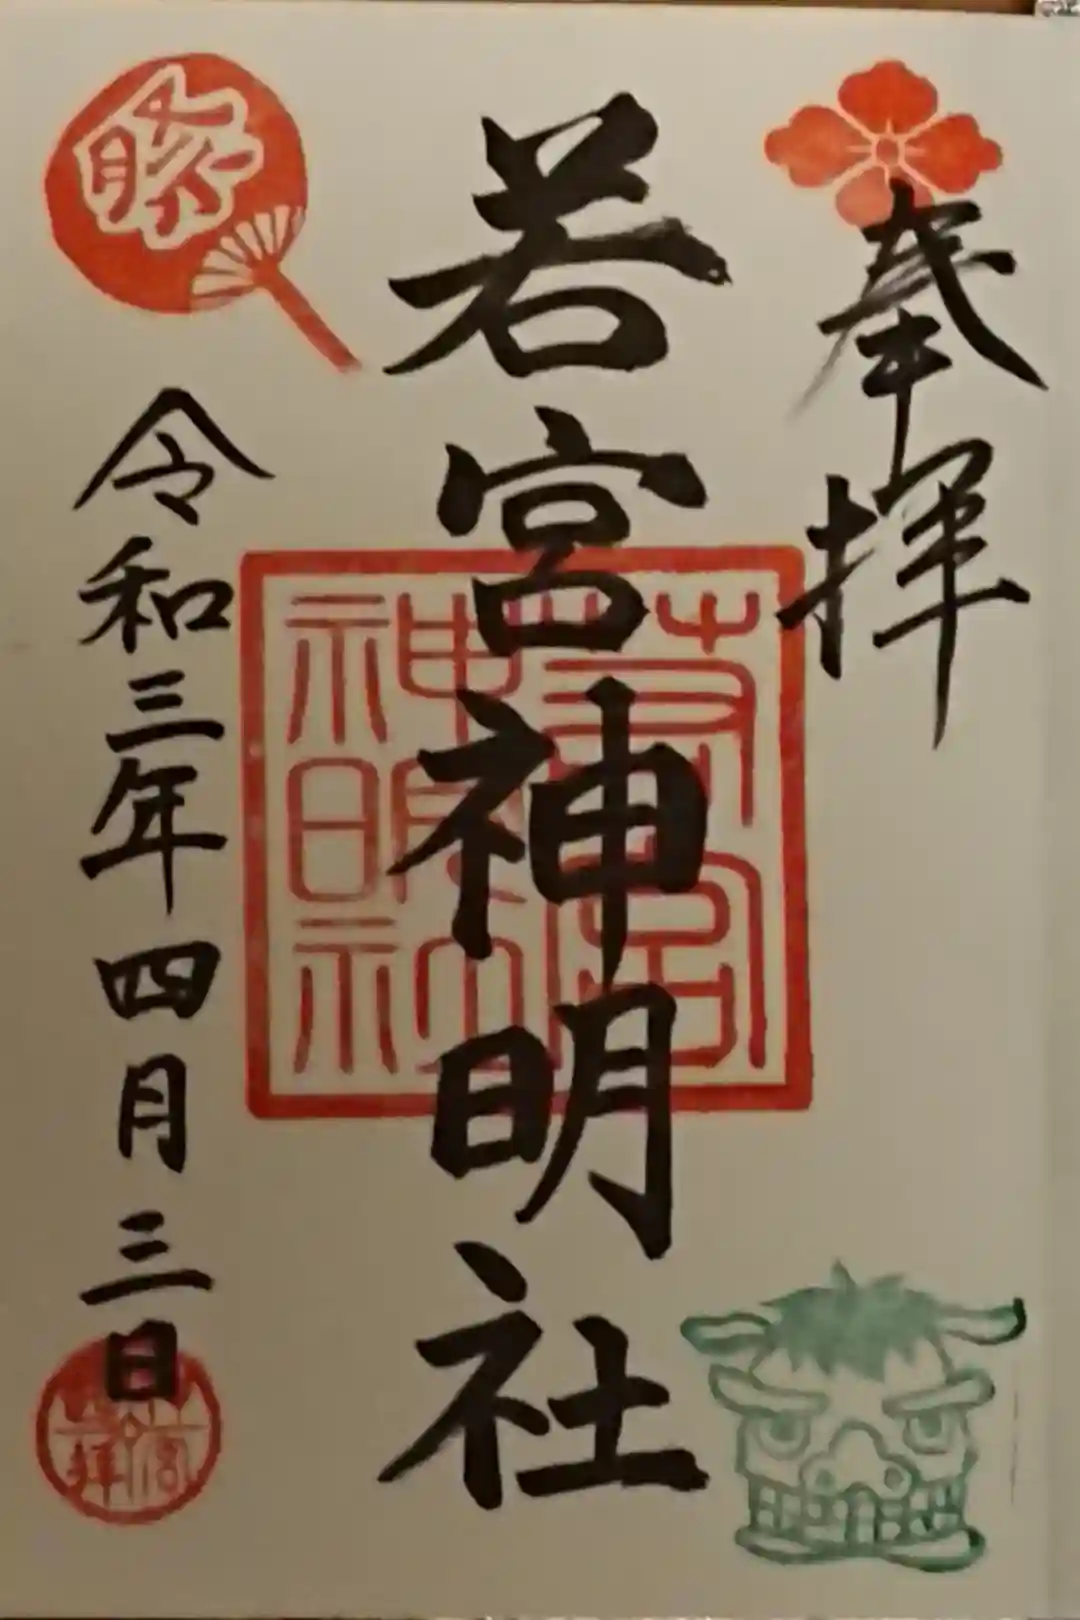 奉拝
若宮神明社
若宮
神明社
勝
令和三年四月三日